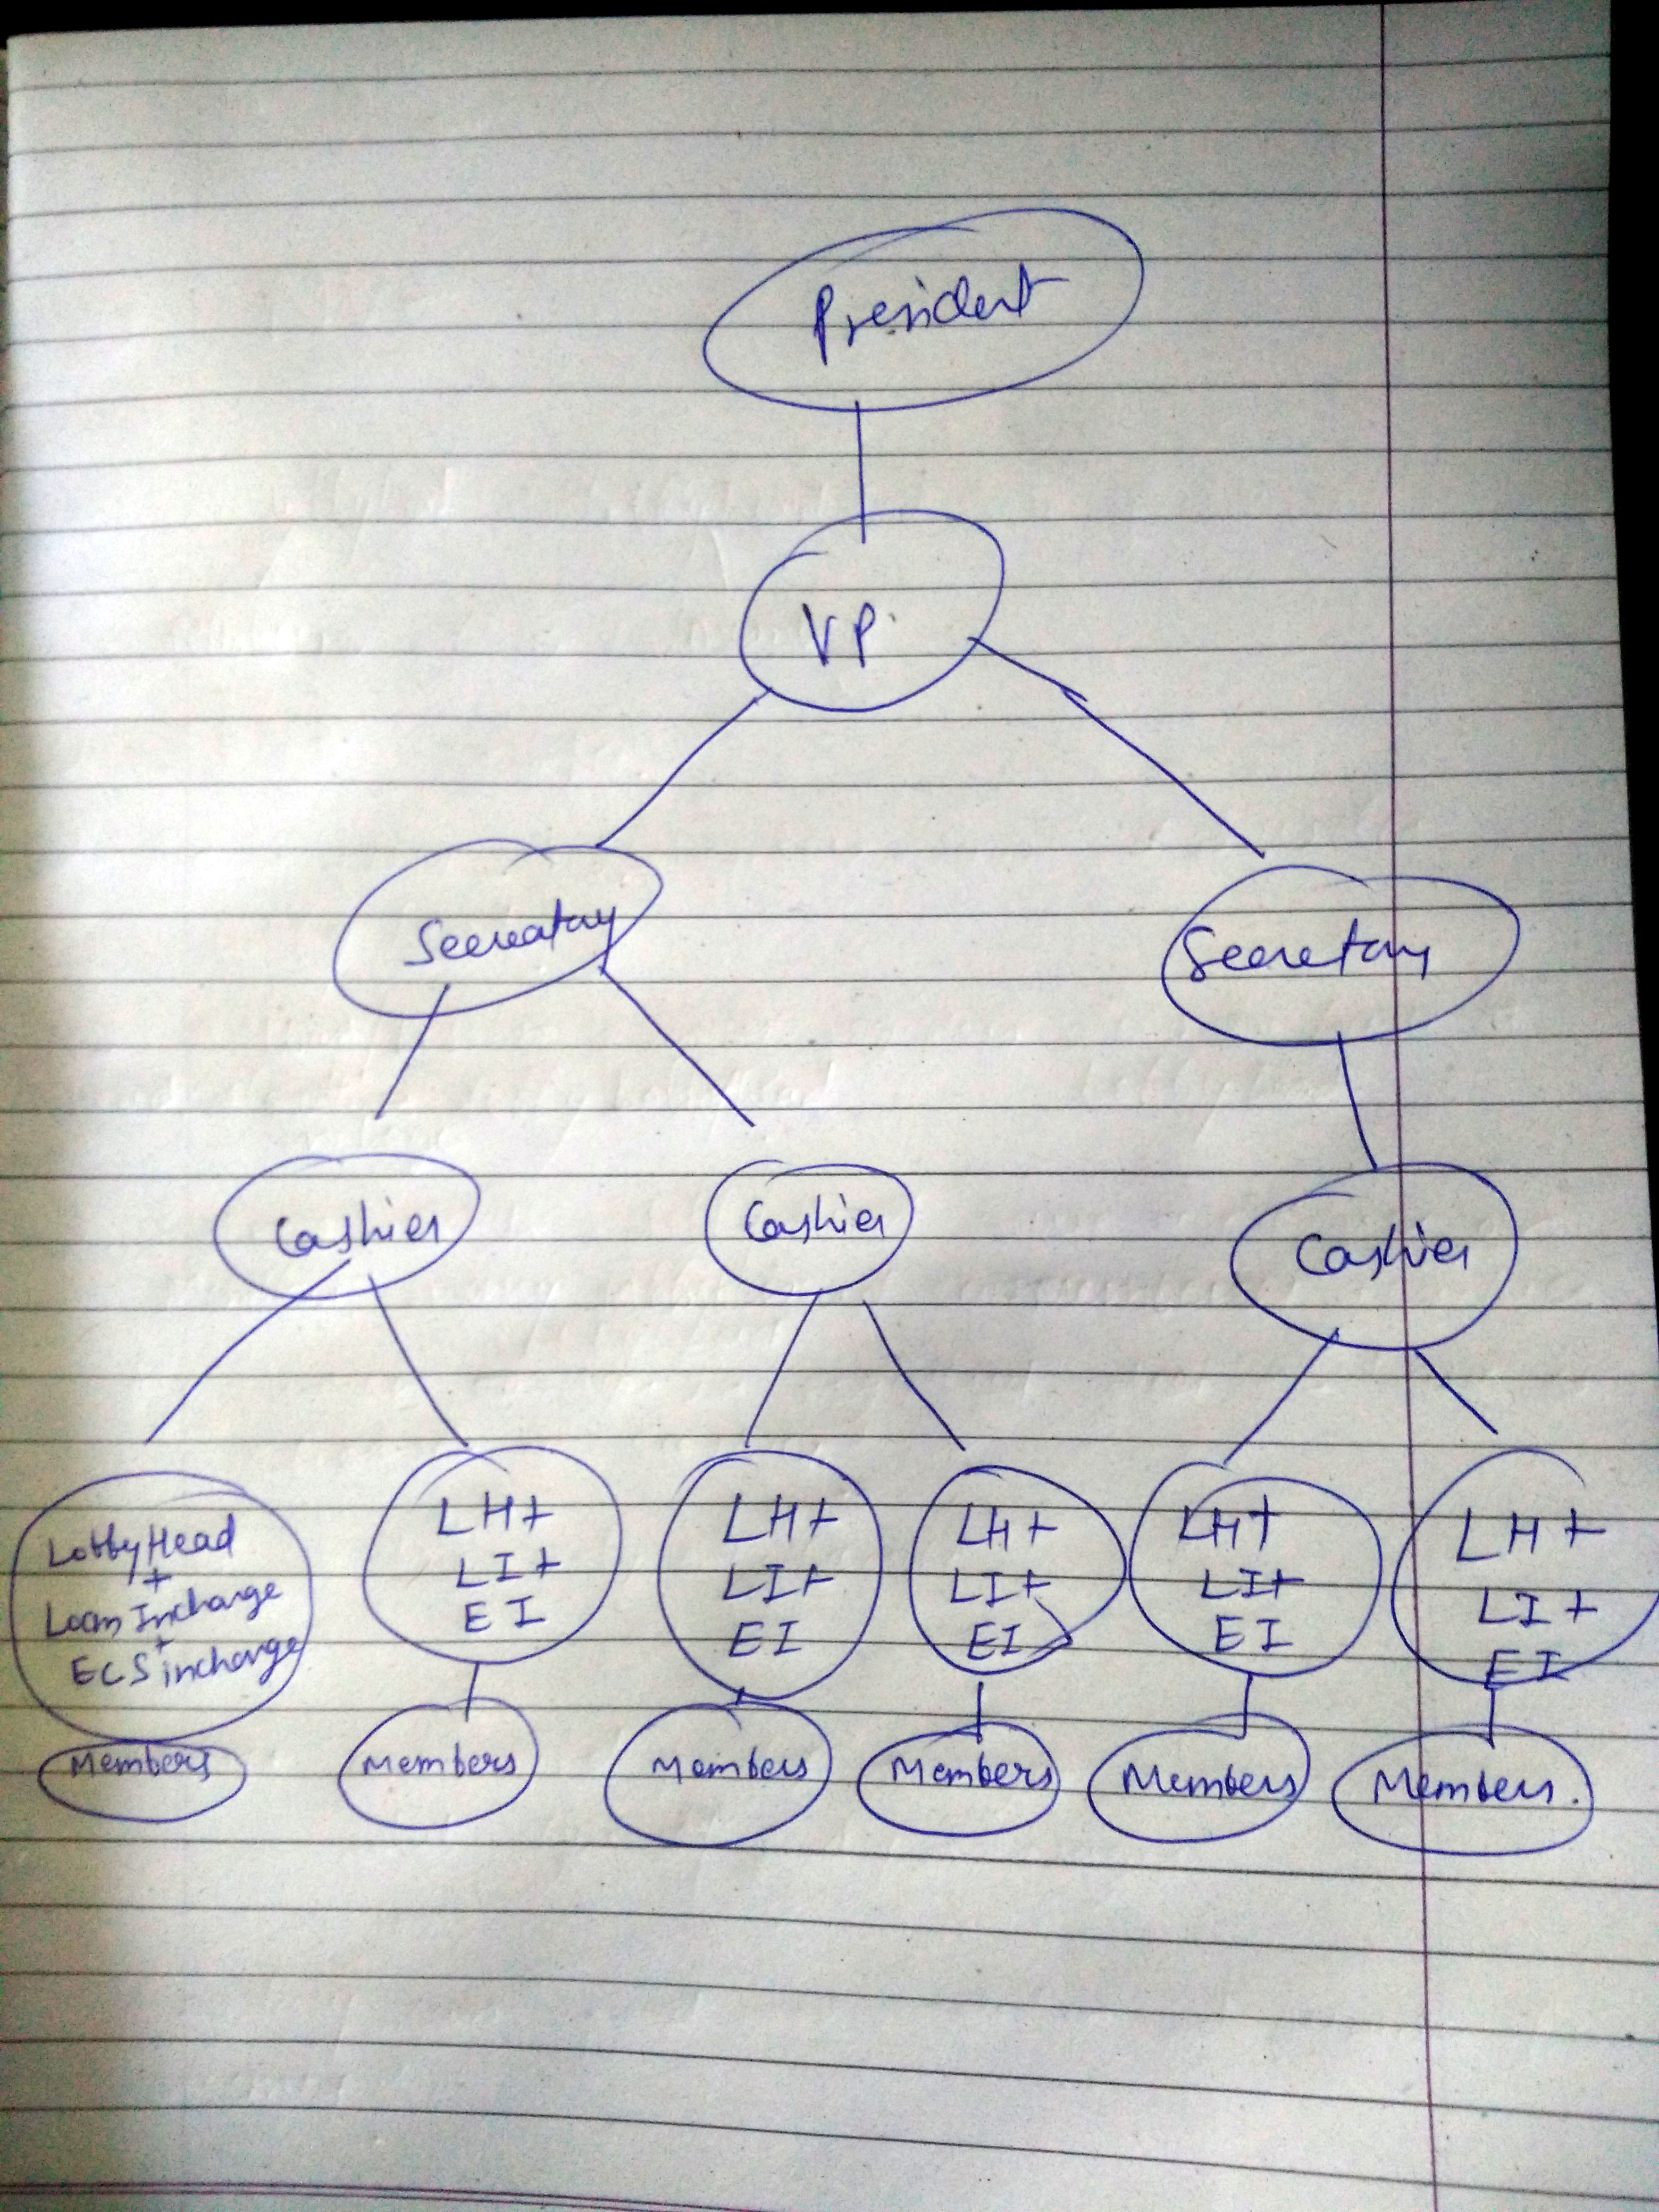 President
VP
Secreatary
Secretary
Cashier
Cashier
Cashier
Lobby Head
+
Loan Incharge
+
ECS incharge
LH+
LI+
EI
LH+
LI+
EI
LH+
LI+
EI
LH+
LI+
EI
LH+
LI+
EI
Members
Members
Members
Members
Members
Members.